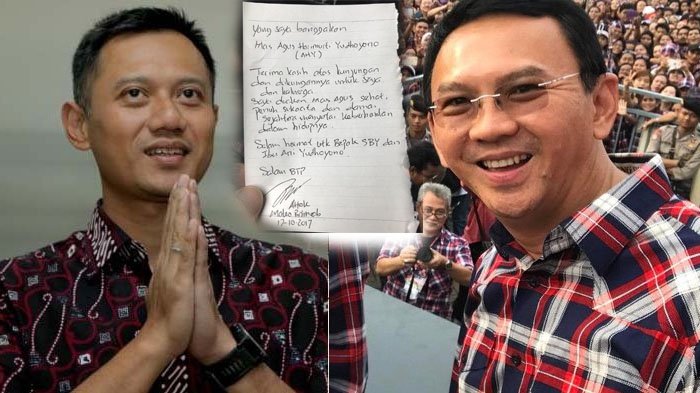 Yang saya banggakan
Mas Agus Harimurti Yudhoyono
(AHY)
Terima kasih atas kunjungan
dan dukungannya untuk saya
dan keluarga
Saya doakan Mas Agus sehat,
penuh sukacita dan damai
sejahtera menyertai
dalam hidupnya.
Salam hormat utk Bapak SBY dan
Ibu Ani Yudhoyono
Salam BTP
Ahok
Mako Brimob
17-10 2017